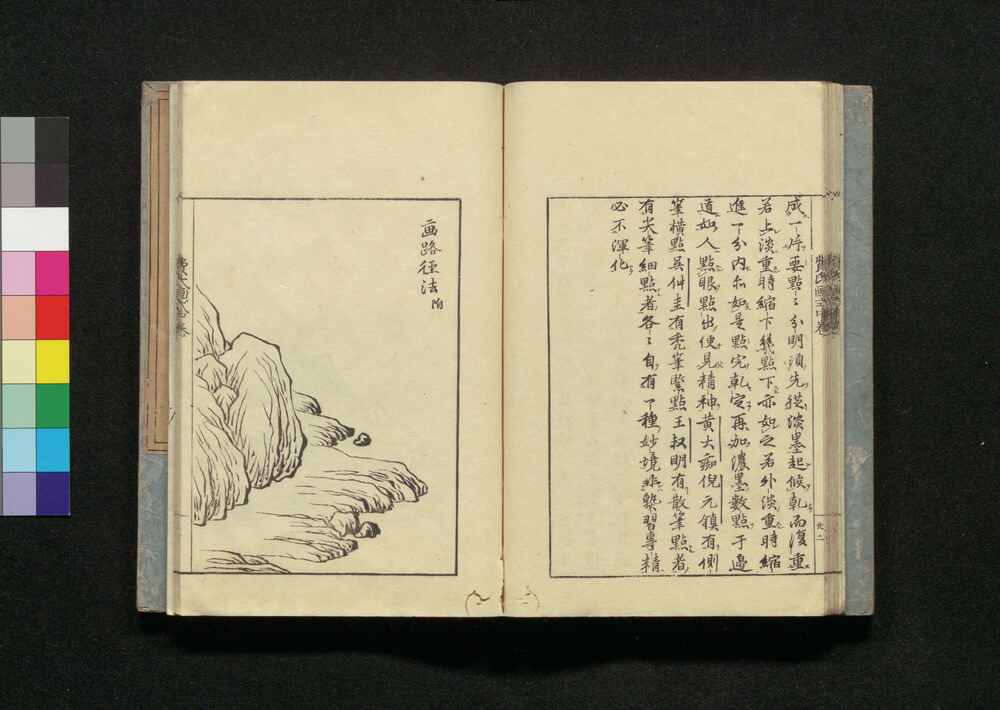 成一片要點々分明須先從淡墨起候乾而復重
若上淡重時縮下幾點下亦如之若外淡重時縮
進一分內亦如是點完乾定再加濃墨數點于邊
道如人點眼點出便見精神黃大痴倪元鎮有側
筆橫點吳仲圭有禿筆緊點王叔明有散筆點者
有尖筆細點者各々自有一種妙境非熟習專精
必不渾化
画路徑法附